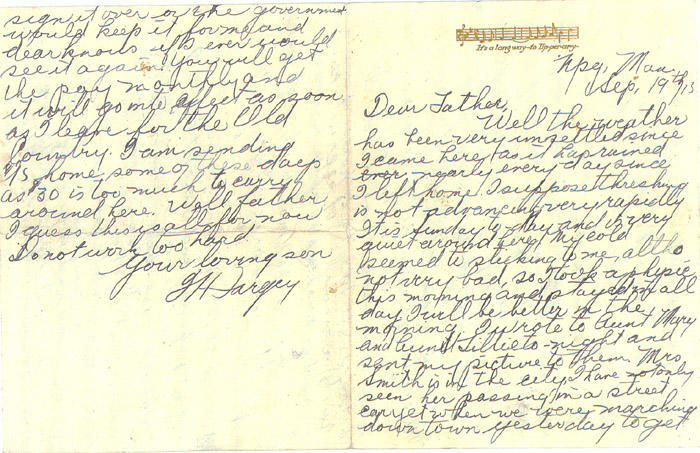 It's a long way to Tipperary
Wpg, Man.
Sep, 19th/15
Dear Father,
Well the weather
has been very unsettled since
I came here, as it has rained
ever nearly every day since
I left home. I suppose threshing
is not advancing very rapidly
It is Sunday to-day and is very
quiet around here. My cold
seemed to sticking to me, altho
not very bad, so I took a physic
this morning and stayed in all
day I will be better in the
morning. I wrote to Aunt Mary
and Aunt Lillie to-night and
sent my picture to them. Mrs
Smith is in the city, I have not only
seen her passing in a street
car yet when we were marching
down town yesterday to get
sign it over or the government
would keep it for me and
dear knows if I ever would
see it again. You will get
the pay monthly and
it will go into effect as soon
as I leave for the Old
Country. I am sending
15 home some of these days
as 30 is too much to carry
around here. Well father
I guess this is all for now
Do not work too hard
Your loving son